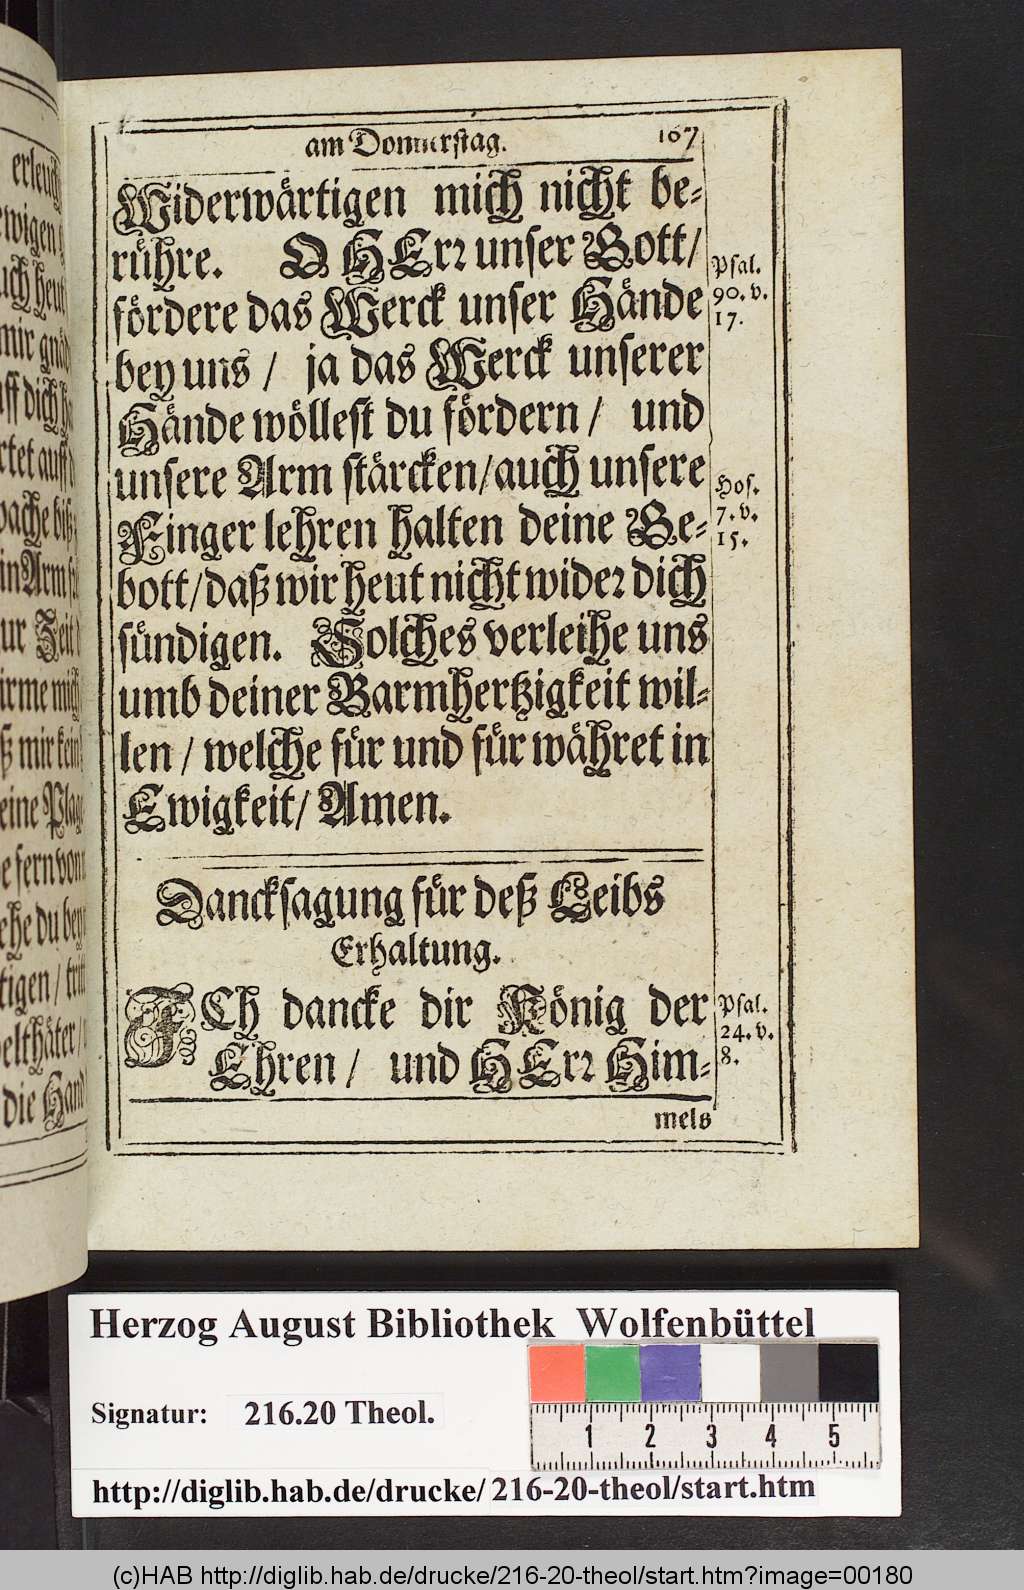 am Donnerstag. 167
Widerwärtigen mich nicht be-
rühre. O HErr unser Gott/
fördere das Werck unser Hände
bey uns / ja das Werck unserer
Hände wöllest du fördern / und
unsere Arm stärcken/auch unsere
Finger lehren halten deine Ge-
bott/daß wir heut nicht wider dich
sündigen. Solches verleihe uns
umb deiner Barmhertzigkeit wil-
len / welche für und für währet in
Ewigkeit/ Amen.
Psal.
90. v.
17.
Hos.
7. v.
15.
Dancksagung für deß Leibs
Erhaltung.
ICh dancke dir König der
Ehren / und HErr Him-
Psal.
24. v.
8.
mels
Herzog August Bibliothek Wolfenbüttel
Signatur: 216.20 Theol.
1 2 3 4 5
http://diglib.hab.de/drucke/ 216-20-theol/start.htm
(c)HAB http://diglib.hab.de/drucke/216-20-theol/start.htm?image=00180